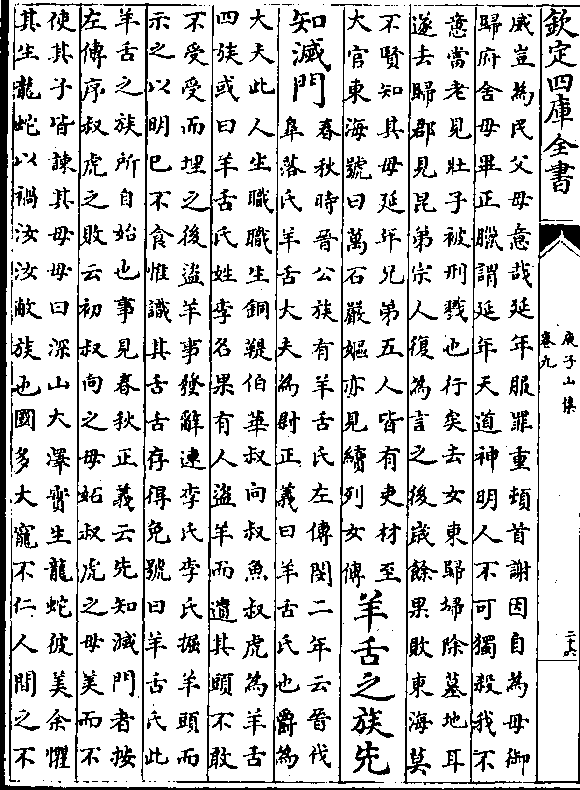 欽定四庫全書
庾子山集
卷九
二十六
威豈為民父母意哉延年服罪重頓首謝因自為母御
歸府舍母畢正臘謂延年天道神明人不可獨殺我不
意當老見壯子被刑戮也行矣去女東歸埽除墓地耳
遂去歸郡見昆弟宗人復為言之後歲餘果敗東海莫
不賢知其母延年兄弟五人皆有吏材至
大官東海號曰萬石嚴嫗亦見續列女傳
羊舌之族先
知滅門
春秋時晉公族有羊舌氏左傳閔二年云晉伐
阜落氏羊舌大夫為尉正義曰羊舌氏也爵為
大夫此人生職職生銅鞮伯華叔向叔魚叔虎為羊舌
四族或曰羊舌氏姓李名果有人盜羊而遺其頭不敢
不受受而埋之後盜羊事發辭連李氏李氏掘羊頭而
示之以明已不食惟識其舌舌存得免號曰羊舌氏此
羊舌之族所自始也事見春秋正義云先知滅門者按
左傳序叔虎之敗云初叔向之母妬叔虎之母美而不
使其子皆諫其母母曰深山大澤實生龍蛇彼美余懼
其生龍蛇以禍汝汝敝族也國多大寵不仁人間之不